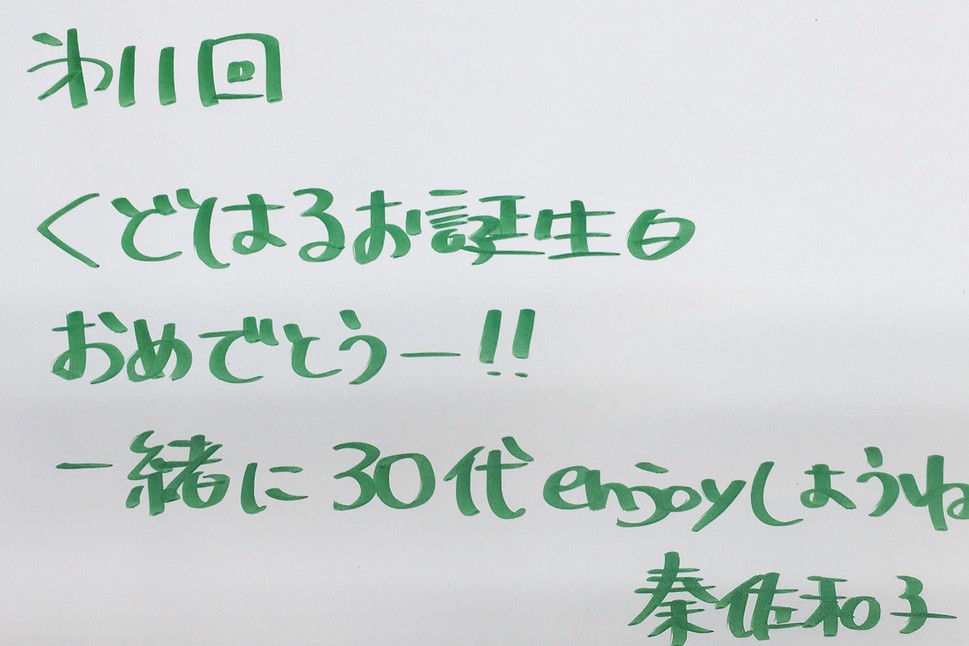 第11回
くどはるお誕生日
おめでとうー!!
一緒に30代enjoyしようね
秦佐和子